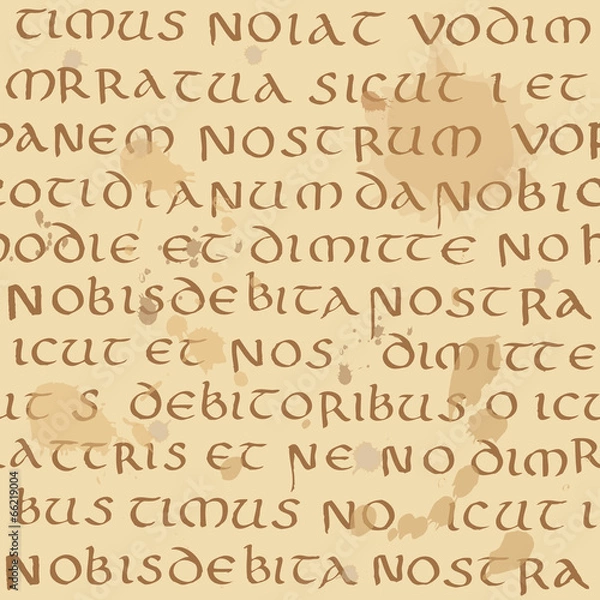 TIMUS NOIAT VODIM
MRRATUA SICUT I ET
PANEM NOSTRUM VOR
COTIDIANUM DA NOBIC
HODIE ET DIMITTE NO
NOBISDEBITA NOSTRA
ICUT ET NOS DIMITTE
UT S DEBITORIBUS O ICU
ATTRIS ET NE NO DIMR
BUS TIMUS NO ICUT I
NOBISDEBITA NOSTRA
Adobe Stock | #66219004